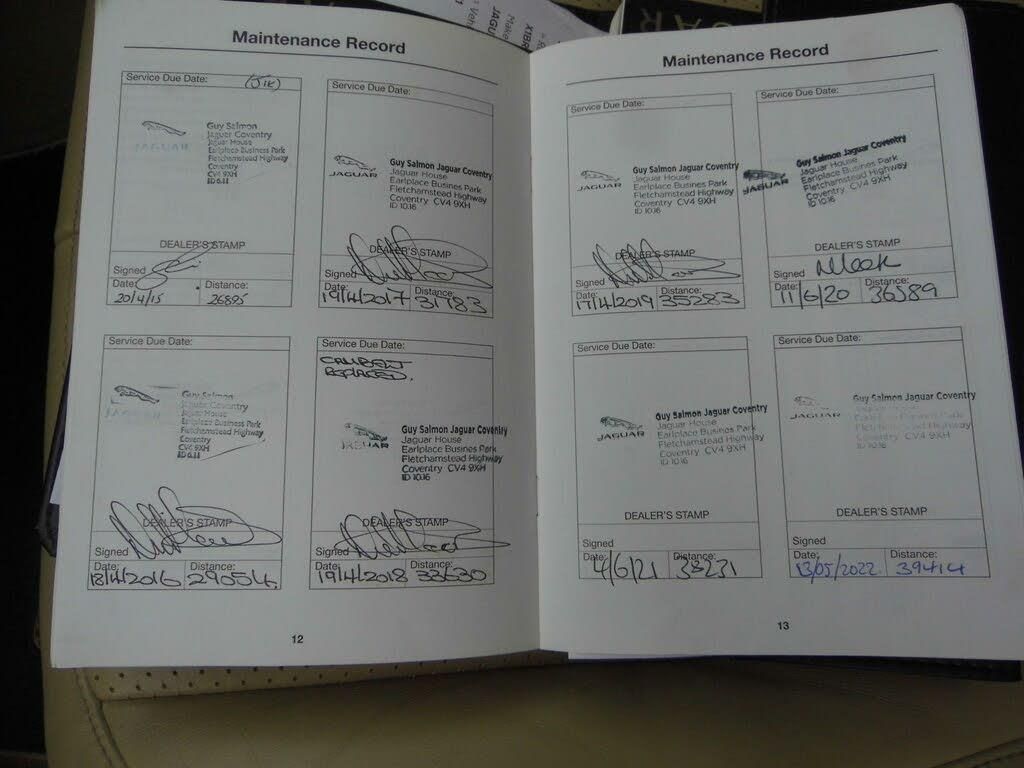 Maintenance Record
Service Due Date:
Guy Salmon
Jaguar Coventry
Jaguar House
Earlplace Business Park
Fletchamstead Highway
Coventry
CV4 9XH
ID 0.11
JAGUAR
DEALER'S STAMP
Signed
Date: Distance:
20/4/15 26895
Service Due Date:
Guy Salmon Jaguar Coventry
Jaguar House
Earlplace Busines Park
Fletchamstead Highway
Coventry CV4 9XH
ID 10.16
JAGUAR
DEALER'S STAMP
Signed
Date: Distance:
19/4/2017 31783
Service Due Date:
Guy Salmon
Jaguar Coventry
Jaguar House
Earlplace Business Park
Fletchamstead Highway
Coventry
CV4 9XH
ID 0.11
DEALER'S STAMP
Signed
Date: Distance:
18/4/2016
Service Due Date:
CAMBELT
REPLACED.
Guy Salmon Jaguar Coventry
Jaguar House
Earlplace Busines Park
Fletchamstead Highway
Coventry CV4 9XH
ID 10.16
JAGUAR
DEALER'S STAMP
Signed
Date: Distance:
19/4/2018 33630
12
Maintenance Record
Service Due Date:
Guy Salmon Jaguar Coventry
Jaguar House
Earlplace Busines Park
Fletchamstead Highway
Coventry CV4 9XH
ID 10.16
JAGUAR
DEALER'S STAMP
Signed
Date: Distance:
17/4/2019 35283
Service Due Date:
Guy Salmon Jaguar Coventry
Jaguar House
Earlplace Busines Park
Fletchamstead Highway
Coventry CV4 9XH
ID 10.16
JAGUAR
DEALER'S STAMP
Signed
Date: Distance:
11/6/20 36589
Service Due Date:
Guy Salmon Jaguar Coventry
Jaguar House
Earlplace Busines Park
Fletchamstead Highway
Coventry CV4 9XH
ID 10.16
JAGUAR
DEALER'S STAMP
Signed
Date: Distance:
4/6/21 38231
Service Due Date:
Guy Salmon Jaguar Coventry
Jaguar House
Earlplace Busines Park
Fletchamstead Highway
Coventry CV4 9XH
ID 10.16
JAGUAR
DEALER'S STAMP
Signed
Date: Distance:
13/05/2022 39414
13